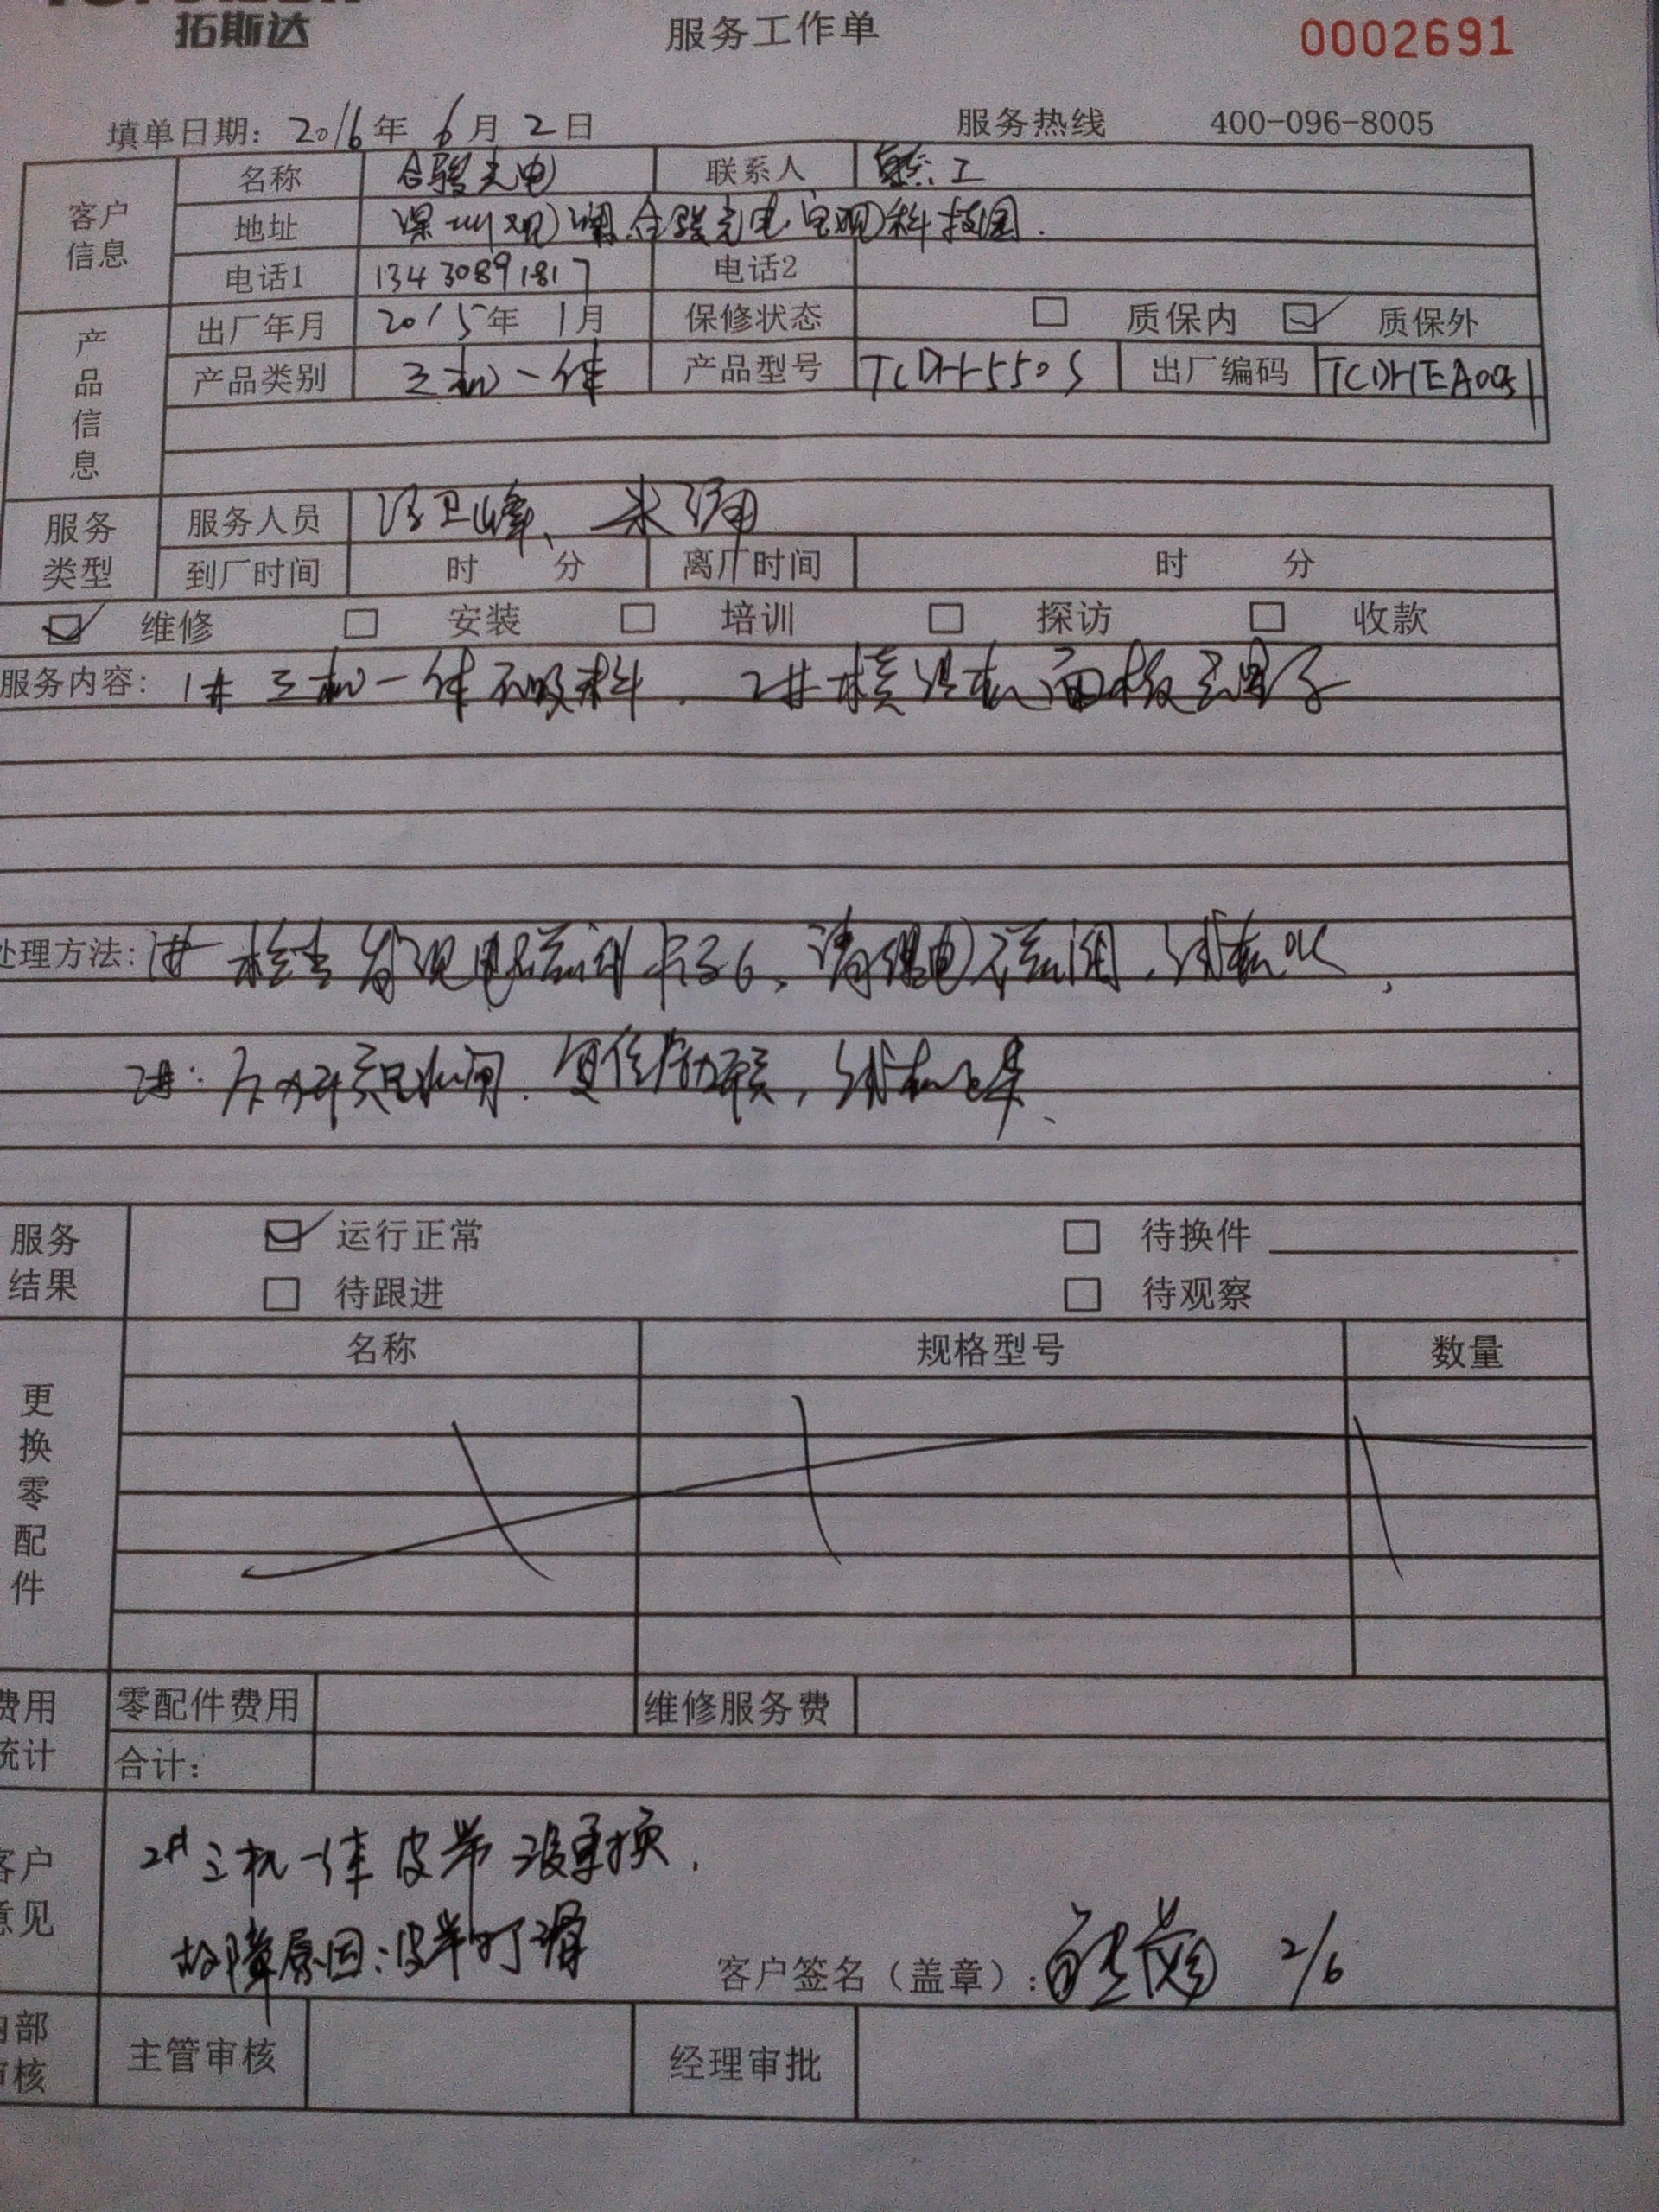 拓斯达
服务工作单
0002691
填单日期: 2016年 6月 2日 服务热线 400-096-8005
客户信息 名称 合骏光电 联系人 熊工
地址 深圳观澜合骏光电宝观科技园.
电话1 13430891817 电话2
产品信息 出厂年月 2015年 1月 保修状态 质保内 质保外
产品类别 三机一体 产品型号 TCDH-550S 出厂编码 TCDHEA0051
服务类型 服务人员 卫峰、朱
到厂时间 时 分 离厂时间 时 分
维修 安装 培训 探访 收款
服务内容: 1# 三机一体不吸料. 2# 模温机面板
处理方法: 1# 检查发现电磁阀卡死了, 清理电磁阀, 试机OK,
2#: 水阀.
服务结果 运行正常 待换件
待跟进 待观察
更换零配件 名称 规格型号 数量
费用统计 零配件费用 维修服务费
合计:
客户意见 2# 三机一体皮带没更换.
故障原因: 皮带打滑
客户签名（盖章）: 熊 2/6
内部审核 主管审核 经理审批